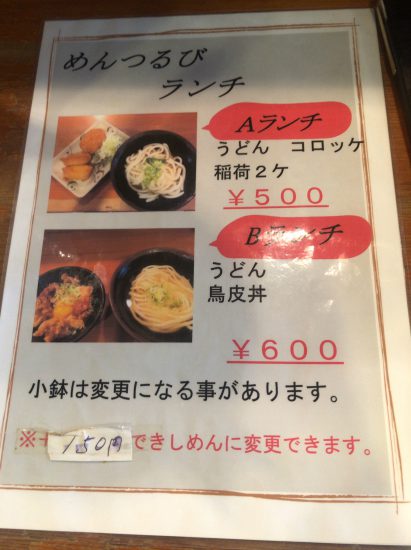 めんつるび
ランチ
Aランチ
うどん コロッケ
稲荷2ケ
¥500
Bランチ
うどん
鳥皮丼
¥600
小鉢は変更になる事があります。
※+150円できしめんに変更できます。